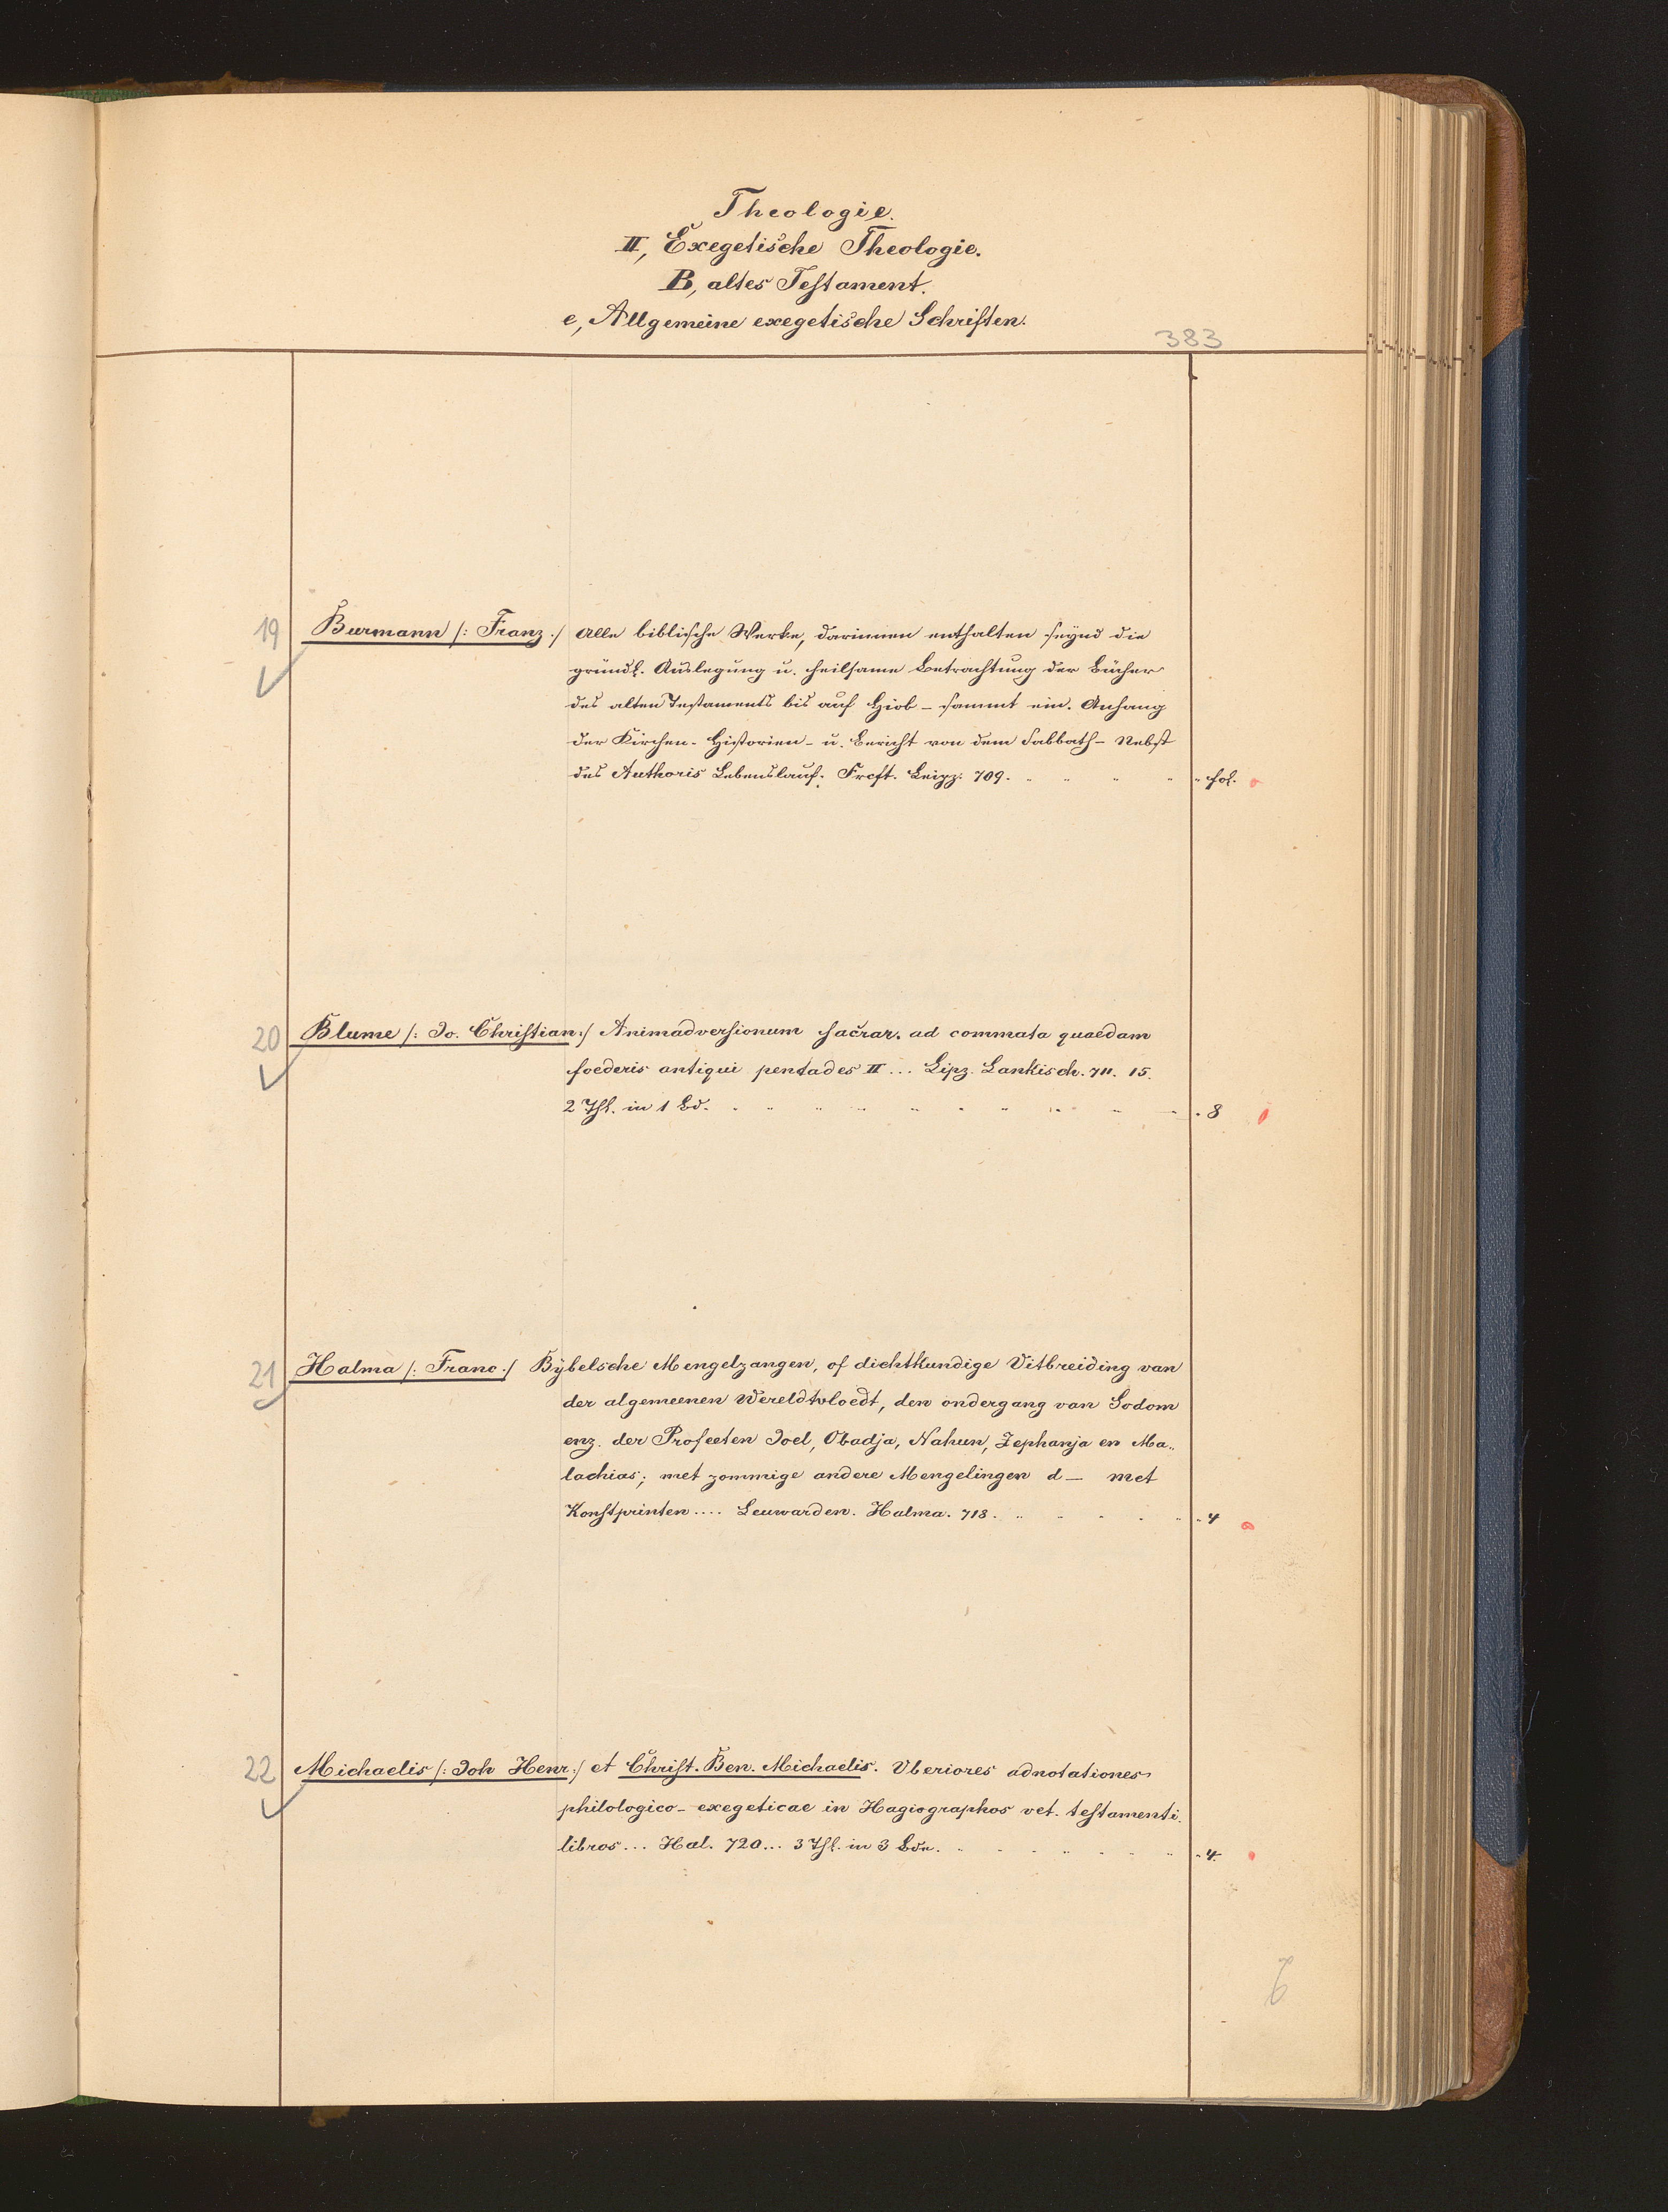 Theologie.
II, Exegetische Theologie.
B, altes Testament.
e, Allgemeine exegetische Schriften.
383
19 Burmann /: Franz :/ Alle biblische Werke, darinnen enthalten seynd die
gründl. Auslegung u. heilsame Betrachtung der Bücher
des alten Testaments bis auf Hiob – sammt ein. Anhang
der Kirchen-Historien – u. Bericht von dem Sabbath – Nebst
des Authoris Lebenslauf. Frcft. Leipz. 709. fol.
20 Blume /: Jo. Christian :/ Animadversionum sacrar. ad commata quaedam
foederis antiqui pentades II ... Lipz. Lankisch. 711. 15.
2 Thl. in 1 Bd. 8
21 Halma /: Franc :/ Bÿbelsche Mengelzangen, of dichtkundige Vitbreiding van
der algemeenen Wereldtvloedt, den ondergang van Sodom
enz. der Profeeten Joel, Obadja, Nahun, Zephanja en Ma-
lachias; met zommige andere Mengelingen d – met
Konstprinten .... Leuwarden. Halma. 718. 4
22 Michaelis /: Joh Henr :/ et Christ. Ben. Michaelis. Vberiores adnotationes
philologico-exegeticae in Hagiographos vet. testamenti
libros ... Hal. 720 ... 3 Thl. in 3 Bdn. 4